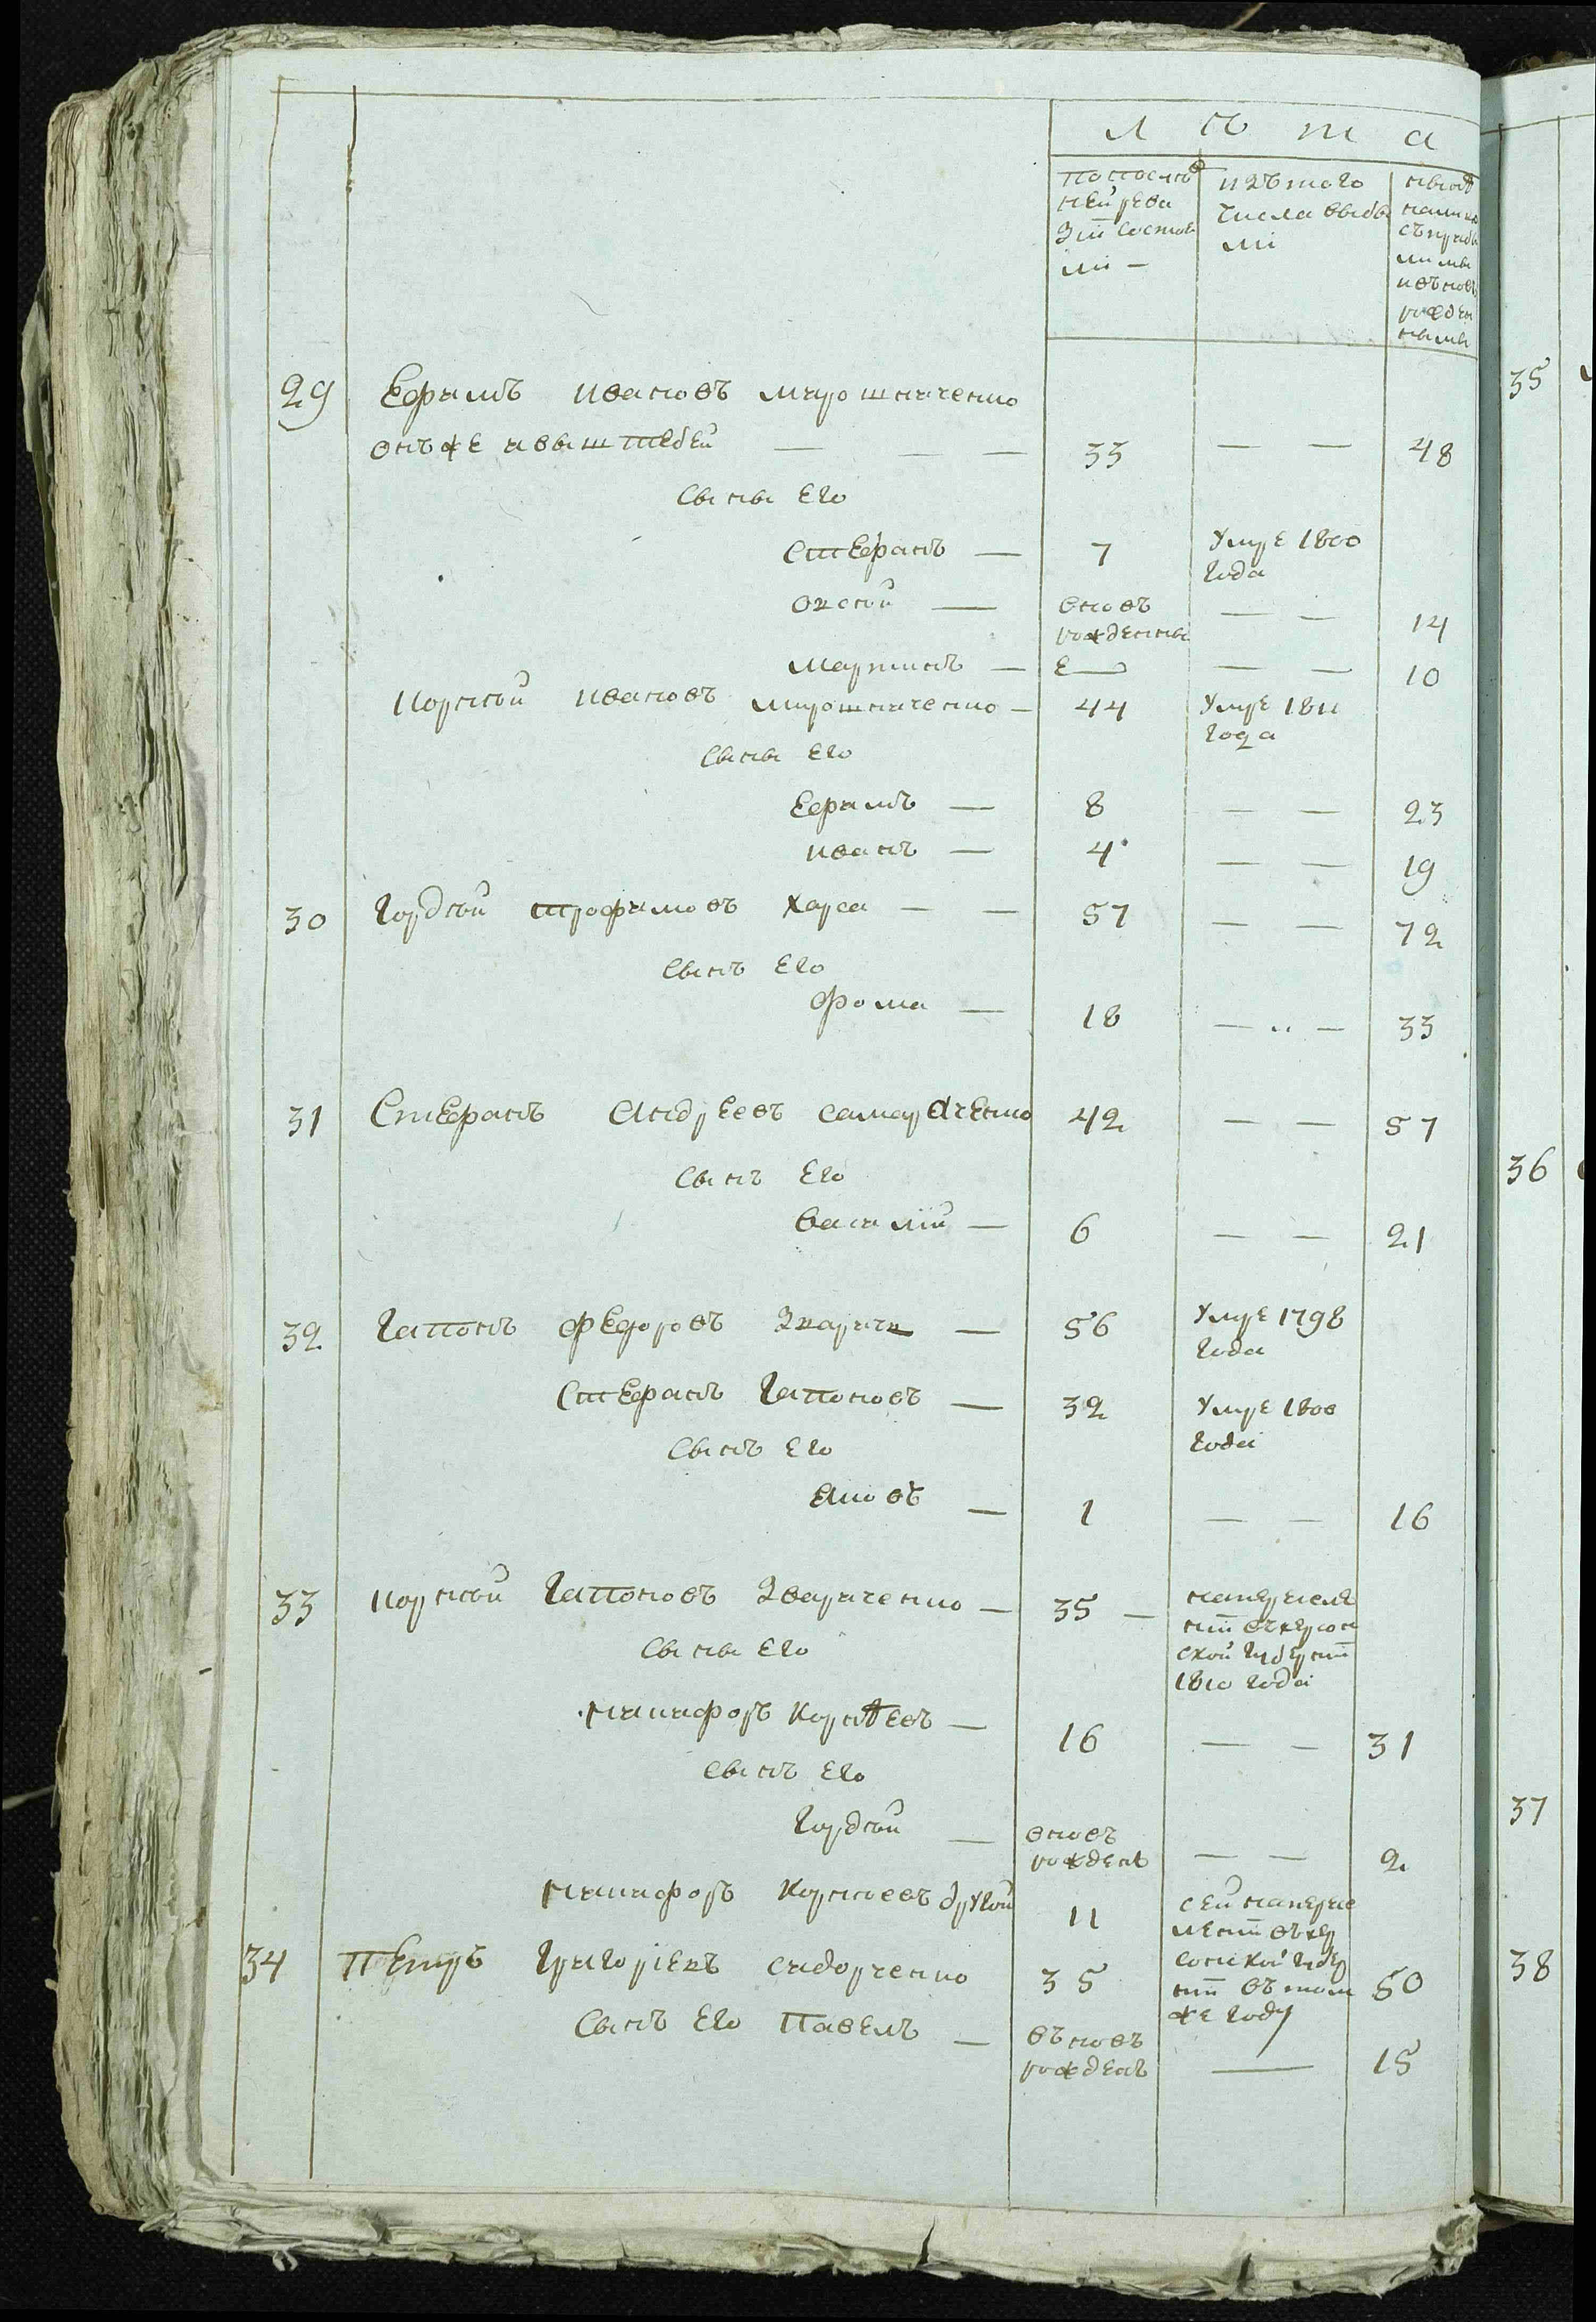 лѣта
по послѣд
ней реви
зіи состоя
ли —
изъ того
числа выбы
ли
нынѣ
на лицо
съ прибы
лыми
и вновь
рожден
ными
29 Ефимъ Ивановъ Мирошниченко
онъ же и — — — 33 — — 48
сыны его
Стефанъ — 7 умре 1800
года
вновь
рожденны — — 14
Мартинъ — — — 10
Корней Ивановъ Мирошниченко — 44 умре 1811
года
сыны его
Ефимъ — 8 — — 23
Иванъ — 4 — — 19
30 Гордей Трофимовъ Харса — — 57 — — 72
сынъ его
Фома — 18 — — 33
31 Стефанъ Андреевъ 42 — — 57
сынъ его
Василій — 6 — — 21
32 Гапонъ Федоровъ Зварич — 56 умре 1798
года
Стефанъ Гапоновъ — 32 умре 1800
года
сынъ его
Яковъ — 1 — — 16
33 Корней Гапоновъ Звариченко — 35 — на переселе
ніи въ херсон
ской губерніи
1810 года
сыны его
Никифоръ Корнѣевъ — 16 — — 31
сынъ его
Гордей — вновь
рожденъ — — 2
Никифоръ Корнеевъ другой 11 сей на пересе
леніи въ хер
сонской губер
ніи въ том
же году
34 Петръ Григоріевъ Сидорченко 35 50
сынъ его Павелъ — въновь
рожденъ — 15
35
36
37
38